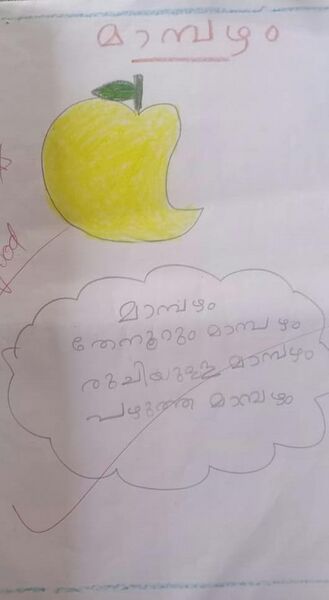 മാമ്പഴം
മാമ്പഴം
തേനൂറും മാമ്പഴം
രുചിയുള്ള മാമ്പഴം
പഴുത്ത മാമ്പഴം